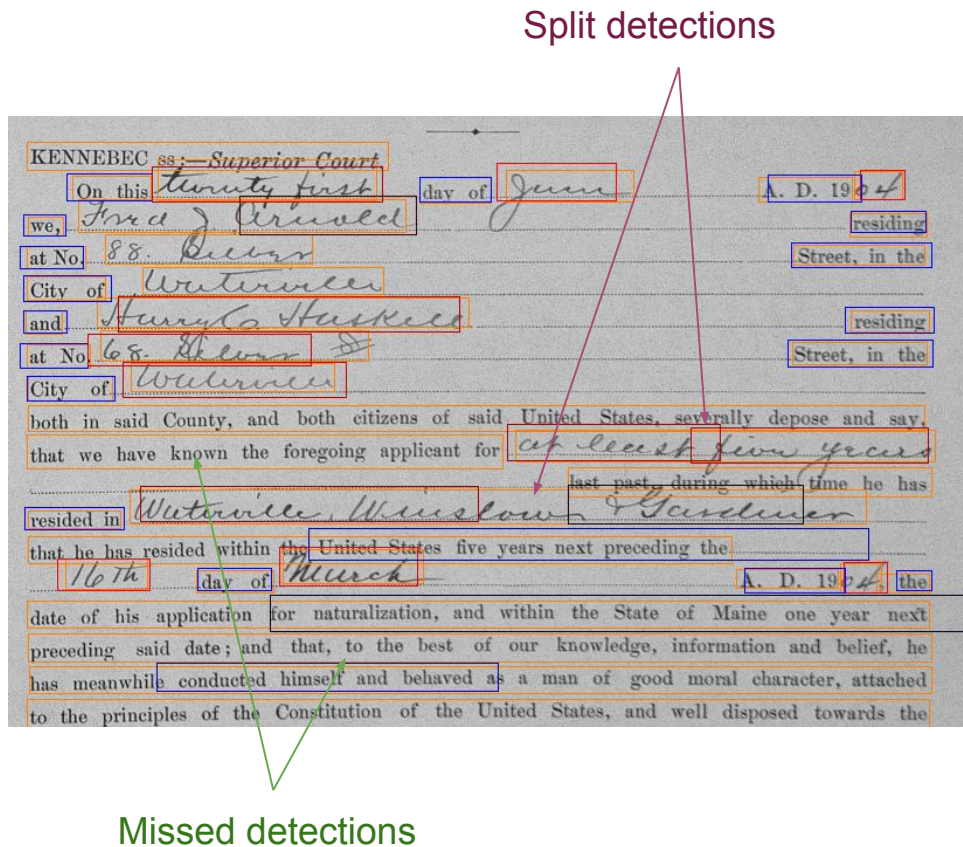 Split detections
KENNEBEC ss:—Superior Court
On this twenty first day of June A. D. 1904
we, Fred J. Arnold residing
at No. 88. Silver Street, in the
City of Waterville
and Harry C Haskell residing
at No. 68. Silver St Street, in the
City of Waterville
both in said County, and both citizens of said United States, severally depose and say,
that we have known the foregoing applicant for at least five years
last past, during which time he has
resided in Waterville, Winslow & Gardiner
that he has resided within the United States five years next preceding the
16th day of March A. D. 1904, the
date of his application for naturalization, and within the State of Maine one year next
preceding said date; and that, to the best of our knowledge, information and belief, he
has meanwhile conducted himself and behaved as a man of good moral character, attached
to the principles of the Constitution of the United States, and well disposed towards the
Missed detections